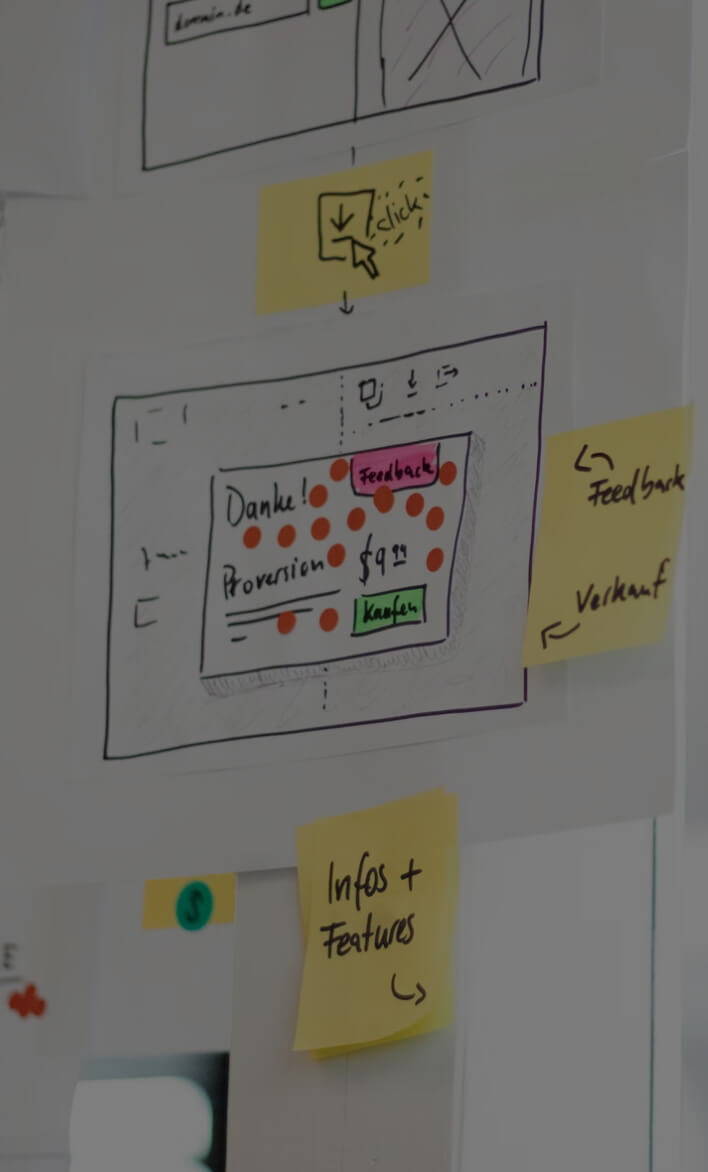 domain.de
click
Feedback
Danke!
Proversion
$9.99
Kaufen
Feedback
Verkauf
Infos +
Features
$